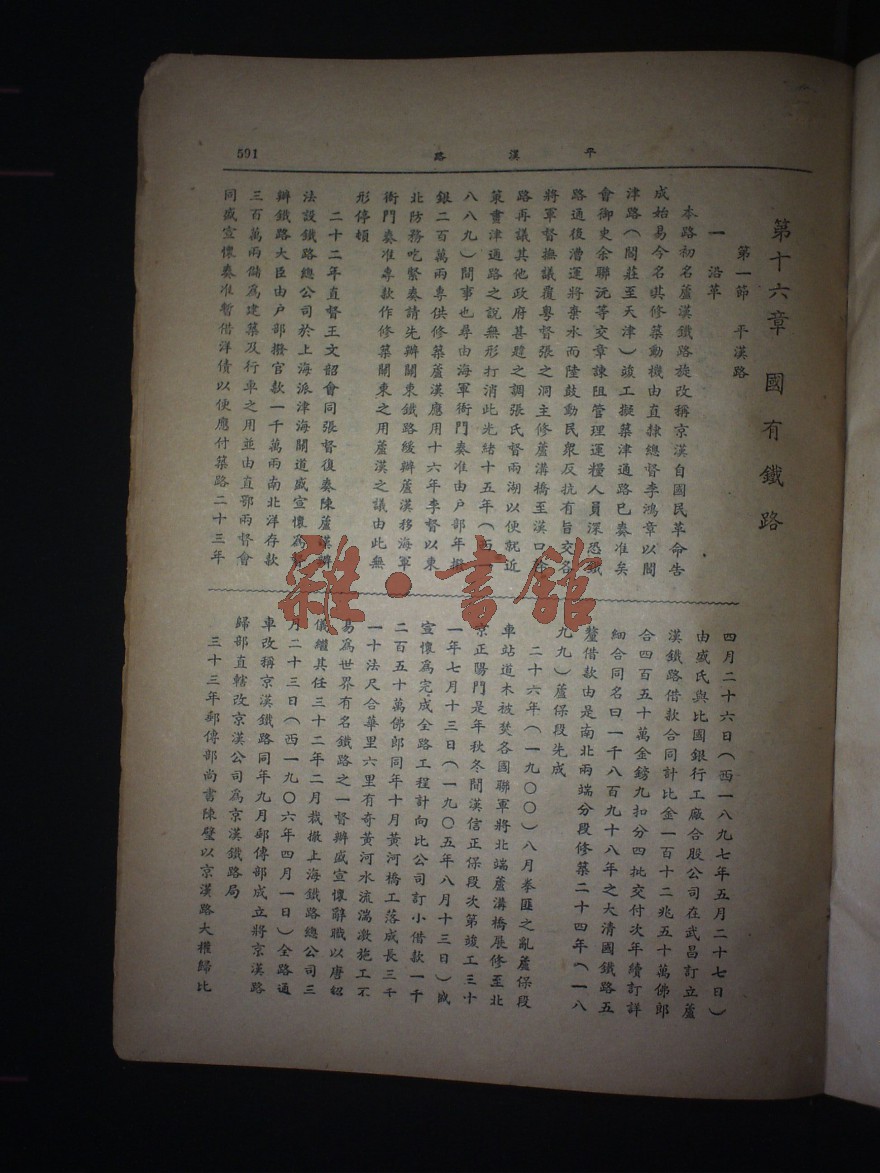 591
平漢路
第十六章 國有鐵路
第一節 平漢路
一 沿革
本路初名蘆漢鐵路旋改稱京漢自國民革命告
成始易今名萁修築動機由直隸總督李鴻章以閻
津路(閻莊至天津)竣工擬築津通路已奏准矣
會御史余聯沅等交章諫阻管理運糧人員深恐鐵
路通後漕運將棄水而陸鼓動民衆反抗有旨交各
將軍督撫議覆粵督張之洞主修蘆溝橋至漢口
路再議其他政府甚韙之調張氏督兩湖以便就近
策畫津通路之說無形打消此光緒十五年(西一
八八九)間事也尋由海軍衙門奏准由户部年撥
銀二百萬兩專供修築蘆漢應用十六年李督以東
北防務吃緊奏請先辦關東鐵路緩辦蘆漢移海軍
衙門奏准專款作修築關東之用蘆漢之議由此無
形停頓
二十二年直督王文韶會同張督復奏陳蘆漢辦
法設鐵路總公司於上海派津海關道盛宣懷為督
辦鐵路大臣由户部撥官款一千萬兩南北洋存款
三百萬兩儲為建築及行車之用並由直鄂兩督會
同盛宣懷奏准暫借洋債以便應付築路二十三年
四月二十六日(西一八九七年五月二十七日)
由盛氏與比國銀行工廠合股公司在武昌訂立蘆
漢鐵路借款合同計比金一百十二兆五十萬佛郎
合四百五十萬金鎊九扣分四批交付次年續訂詳
細合同名曰一千八百九十八年之大清國鐵路五
釐借款由是南北兩端分段修築二十四年(一八
九九)蘆保段先成
二十六年(一九〇〇)八月拳匪之亂蘆保段
車站道木被焚各國聯軍將北端蘆溝橋展修至北
京正陽門是年秋冬間漢信正保段次第竣工三十
一年七月十三日(一九〇五年八月十三日)盛
宣懷為完成全路工程計向比公司訂小借款一千
二百五十萬佛郎同年十月黃河橋工落成長三千
一十法尺合華里六里有奇黃河水流湍激施工不
易為世界有名鐵路之一督辦盛宣懷辭職以唐紹
儀繼其任三十二年二月裁撤上海鐵路總公司三
月二十三日(西一九〇六年四月一日)全路通
車改稱京漢鐵路同年九月郵傳部成立將京漢路
歸部直轄改京漢公司為京漢鐵路局
三十三年郵傳部尚書陳璧以京漢路大權歸比
雜·書館